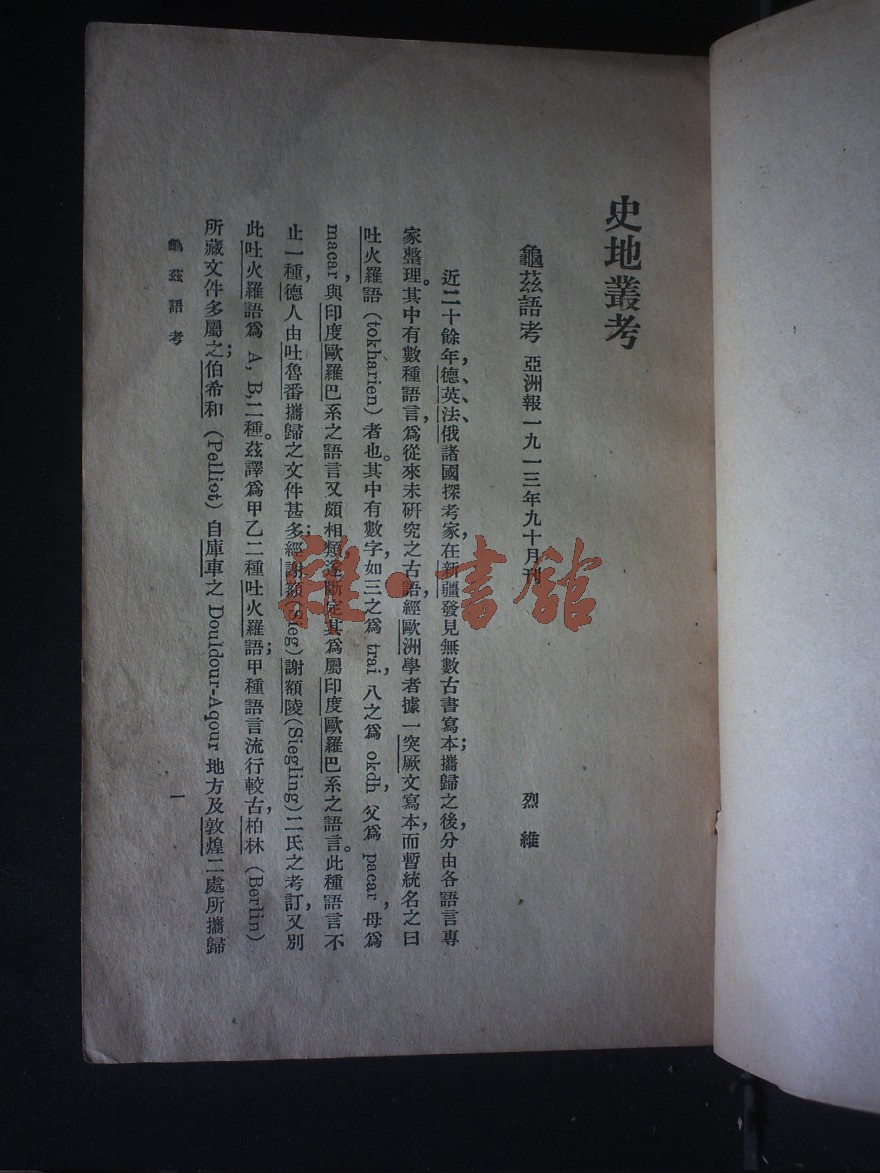 史地叢考
龜茲語考　亞洲報一九一三年九十月刊　烈維
近二十餘年，德、英、法、俄諸國探考家，在新疆發見無數古書寫本；攜歸之後，分由各語言專
家整理。其中有數種語言，爲從來未研究之古語，經歐洲學者據一突厥文寫本，而暫統名之曰
吐火羅語（tokharien）者也。其中有數字，如三之爲 trai，八之爲 okdh，父爲 pacar，母爲
macar，與印度歐羅巴系之語言又頗相類，遂斷定其爲屬印度歐羅巴系之語言。此種語言不
止一種，德人由吐魯番攜歸之文件甚多；經謝額（Sieg）謝額陵（Siegling）二氏之考訂，又別
此吐火羅語爲 A, B, 二種。茲譯爲甲乙二種吐火羅語；甲種語言流行較古，柏林（Berlin）
所藏文件多屬之；伯希和（Pelliot）自庫車之 Douldour-Aqour 地方及敦煌二處所攜歸
龜茲語考　一
雜·書館